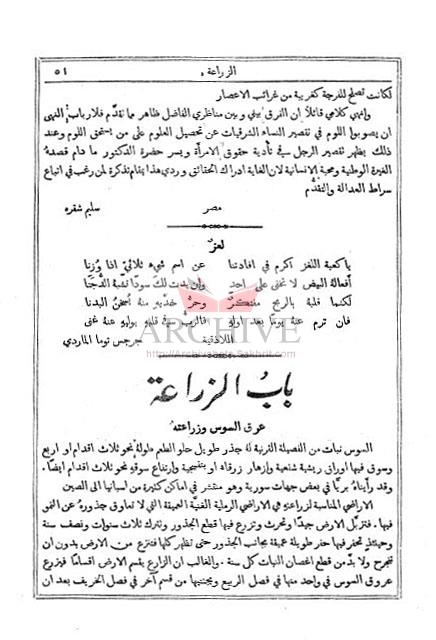 الزراعة
٥١
لكانت تصلح للفرجة كغريبة من غرائب الاعصار
وانهي كلامي قائلاً ان الفرق بيني وبين مناظري الفاضل ظاهر مما تقدَّم فلارباب النهى
ان يصوبوا اللوم في تقصير النساء الشرقيات عن تحصيل العلوم على من استحق اللوم وعند
ذلك يظهر تقصير الرجل في تأدية حقوق الامرأة ويسر حضرة الدكتور ما دام قصدهُ
الغيرة الوطنية ومحبة الانسانية لان الغاية ادراك الحقائق وردي هذا يقام تذكرة لمن رغب في اتباع
سراط العدالة والتقدُّم
مصر سليم شقره
لغز
ياكعبة اللغز اكرم في افادتنا عن اسم شيء ثلاثيٍ اذا وُزنا
افعالهُ البيض لا تخفى على احدٍ وان بدت لك سودًا تشبه الدُّجنا
لكنما قلبهُ بالريح وحرُّ خدَّيهِ منهُ البدنا
فان ترم عنهُ يومًا بعد اولهِ فالربُّ في قلبهِ يوليهِ عنهُ غنى
اللاذقية جرجس توما الماردي
ARCHIVE
http://Archivebeta.Sakhrit.com
باب الزراعة
عرق السوس وزراعتهُ
السوس نبات من الفصيلة القرنية لهُ جذر طويل حلو الطعم طولهُ نحو ثلاث اقدام او اربع
وسوق فيها اوراق ريشية شفعية وازهار زرقاء او بنفسجية وارتفاع سوقهِ نحو ثلاث اقدام ايضًا.
وقد رأيناهُ بريًّا في بعض جهات سورية وهو منتشر في اماكن كثيرة من اسبانيا الى الصين
الاراضي المناسبة لزراعتهِ هي الاراضي الرملية الغنيَّة العميقة التي لا تعاوق جذورهُ عن النمو
فيها. فتزبَّل الارض جيدًا وتحرث وتزرع فيها قطع الجذور وتترك ثلاث سنوات ونصف سنة
وحينئذٍ تحفر فيها حفر طويلة عميقة بجانب الجذور حتى تظهر كلها فتنزع من الارض بدون ان
تنجرح ولا بدَّ من قطع اغصان النبات كل سنة. والغالب ان الزارع يقسم الارض اقسامًا فيزرع
عروق السوس في واحد منها في فصل الربيع ويجتنيها من قسم آخر في فصل الخريف بعد ان